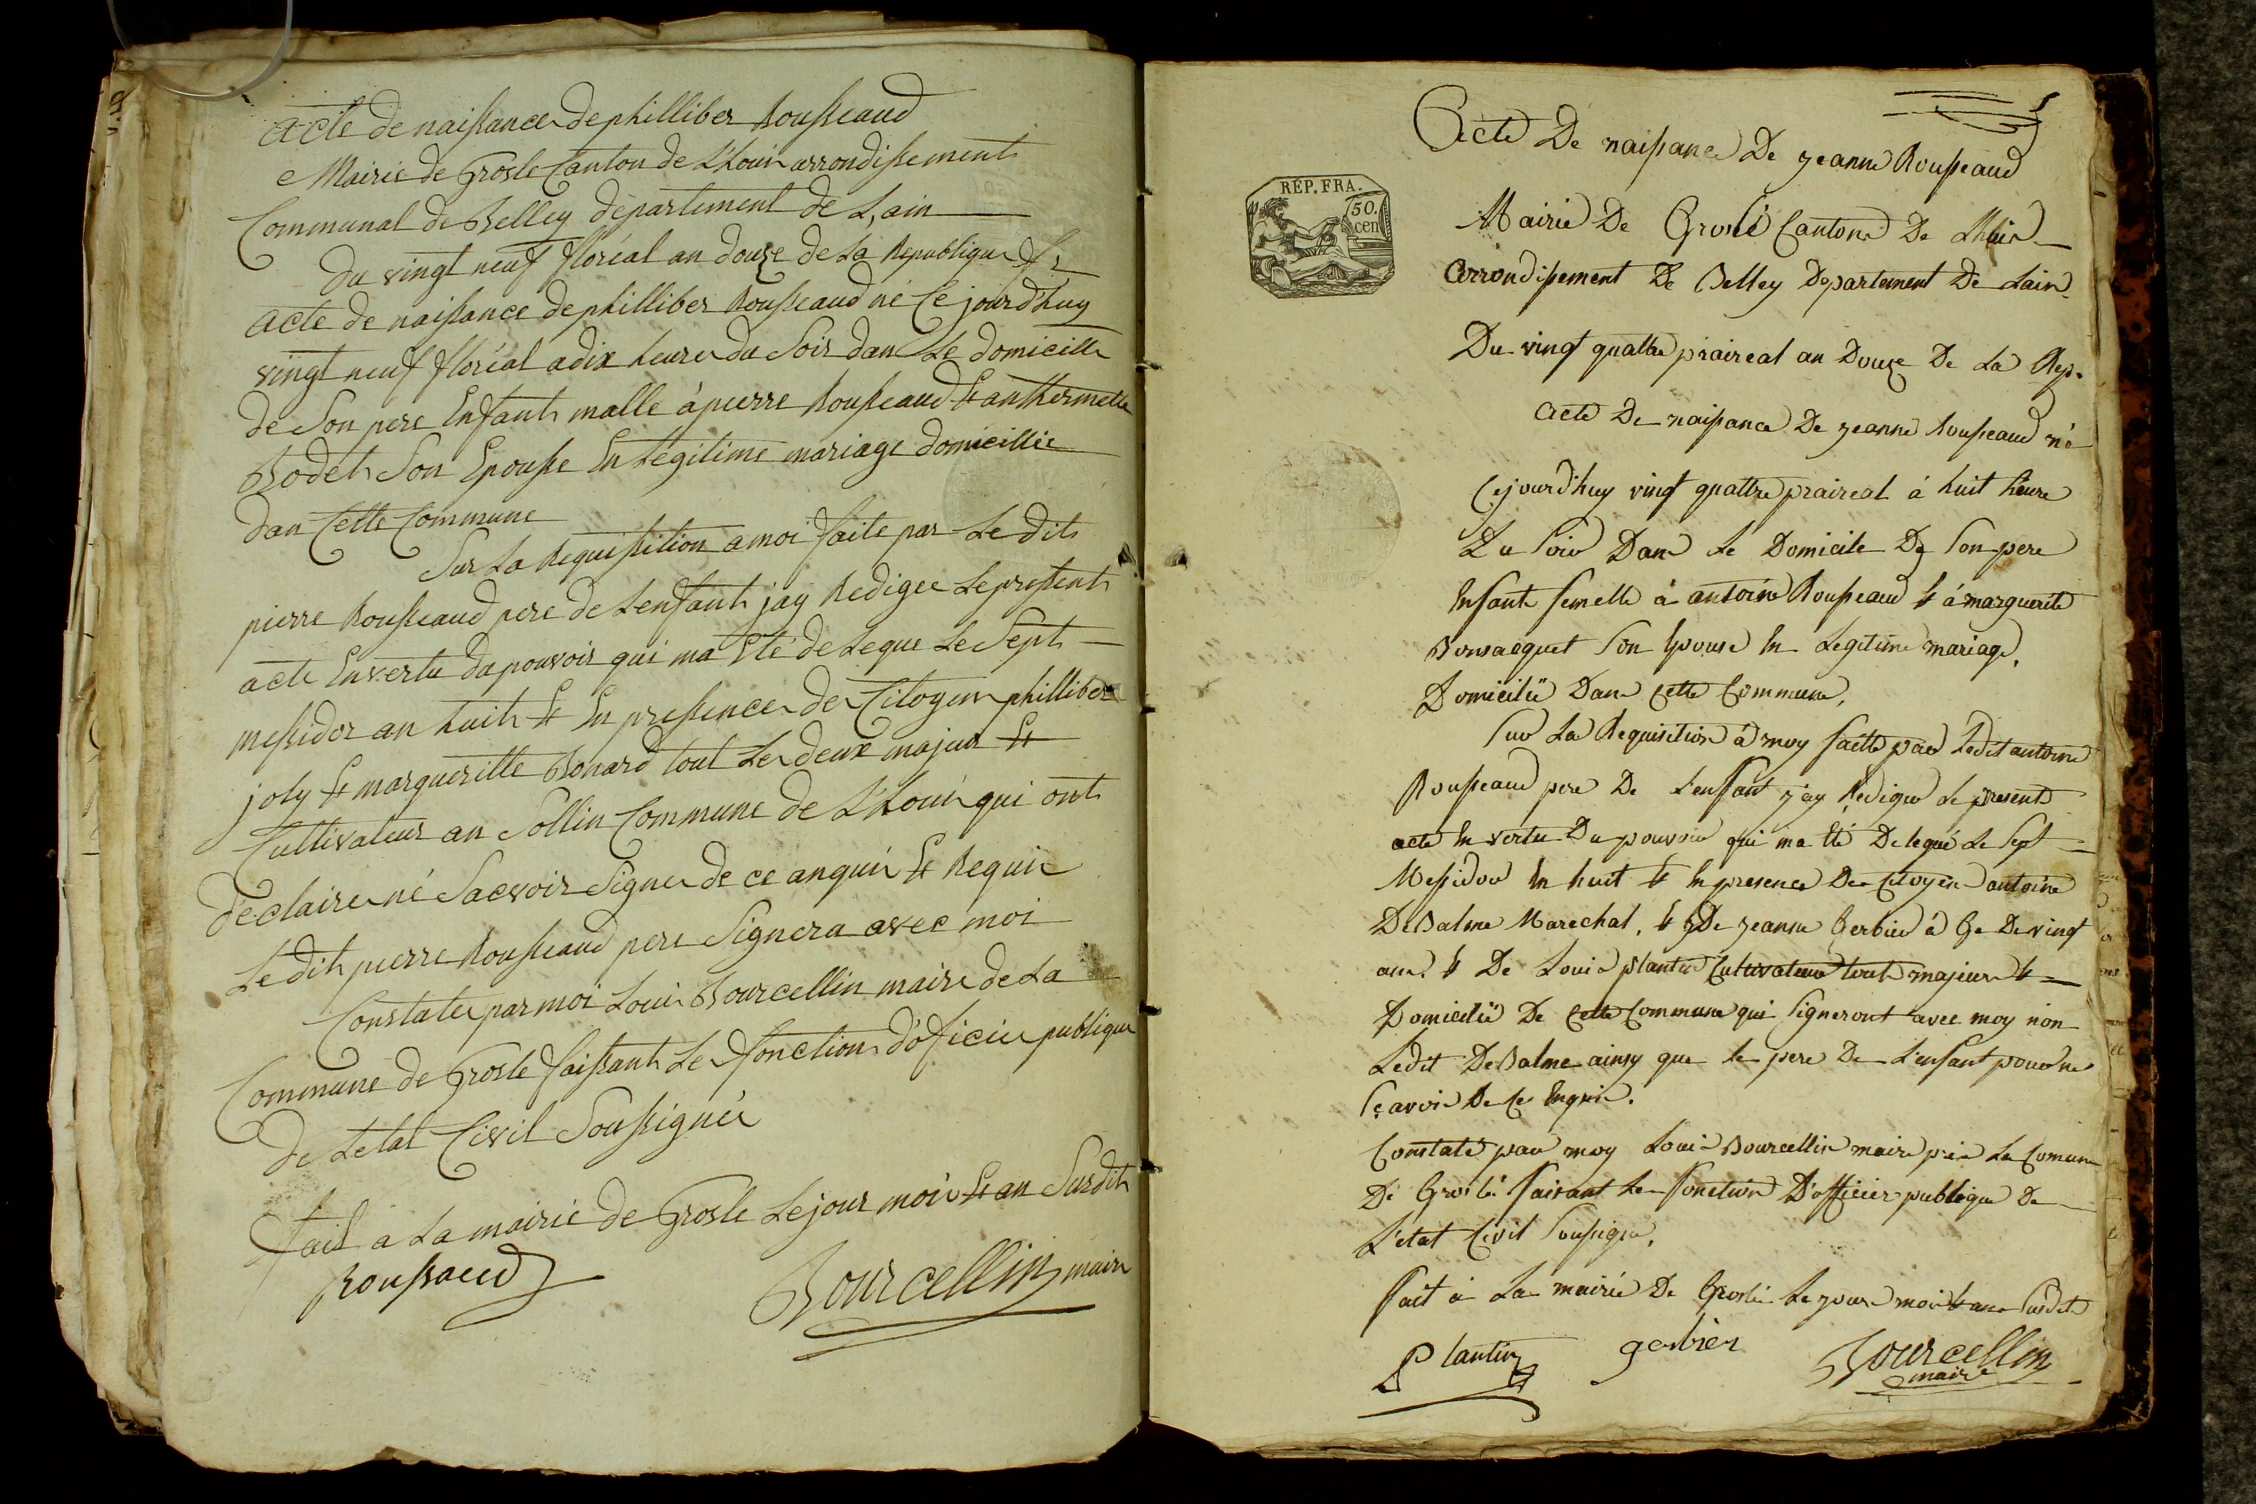 acte de naissance de philliber Rousseaud
Mairie de Grosle Canton de L'houi arrondissement
Communal de Belley département de L'ain
du vingt neuf floréal an douze de La Republique fr
acte de naissance de philliber Rousseaud né Ce jourd'huy
vingt neuf floréal a dix heure du Soir dan Le domicille
de Son pere Enfant malle à pierre Rousseaud & anthermette
Bodet Son Epousse En Légitime mariage domicillié
dan Cette Commune
Sur La Requissition a moi faite par Le dit
pierre Rousseaud pere de Lenfant jay Redigee Le pressent
acte En vertu du pouvoir qui ma Eté delegue Le Sept
messidor an huit & En pressence de Citoyen philliber
joly & margueritte Bonard tout Le deux majeur &
Cultivateur au Sollin Commune de L'houi qui ont
déclaire né Sacvoir Signer de ce anquir & Requie
Le dit pierre Rousseaud pere Signera avec moi
Constater par moi Loui Bourcellin maire de La
Commune de Grosle faissant Le fonction d'oficier publique
de Letat Civil Soussignér
fait a La mairie de Grosle Le jour moi & an Susdit
Roussaeud
Bourcellin maire
5
Acte De naissance De jeanne Rousseaud
REP. FRA.
50.
cen
Mairie De Groslé Canton De Lhuis
Arrondissement De Belley Departement De Lain
Du vingt quattre praireal an Douze De La Rep.
Acte De naissance De jeanne Rousseaud né
Cejourd'huy vingt quattre praireal à huit heure
Du Soir Dans Le Domicile De Son pere
Enfant femelle à antoine Rousseaud & à marguerite
Bonsacquet Son Epouse En Legitime mariage,
Domicilié Dans Cette Commune,
Sur La Requisition à moy faitte par Ledit antoine
Rousseaud pere De L'enfant j'ay Redigé Le present
acte En vertu Du pouvoir qui ma Eté Delegué Le Sept
Messidor En huit & En presence De Citoyen antoine
DeBalme Marechal, & De jeanne Gerbier à Ge De vingt
ans & De Louis plantin Cultivateur tout majeur &
Domicilié De Cette Commune qui Signeront avec moy non
Ledit DeBalme ainsy que le pere De L'enfant pour ne
Sçavoir De Ce Enquir.
Constaté par moy Loui Bourcellin maire pr La Comune
De Groslé faisant Le fonction D'officier publique De
L'etat Civil Soussigné,
fait à La mairie De Groslé Le jour moi & an Susdit
Plantin
gerbier
Bourcellin
maire